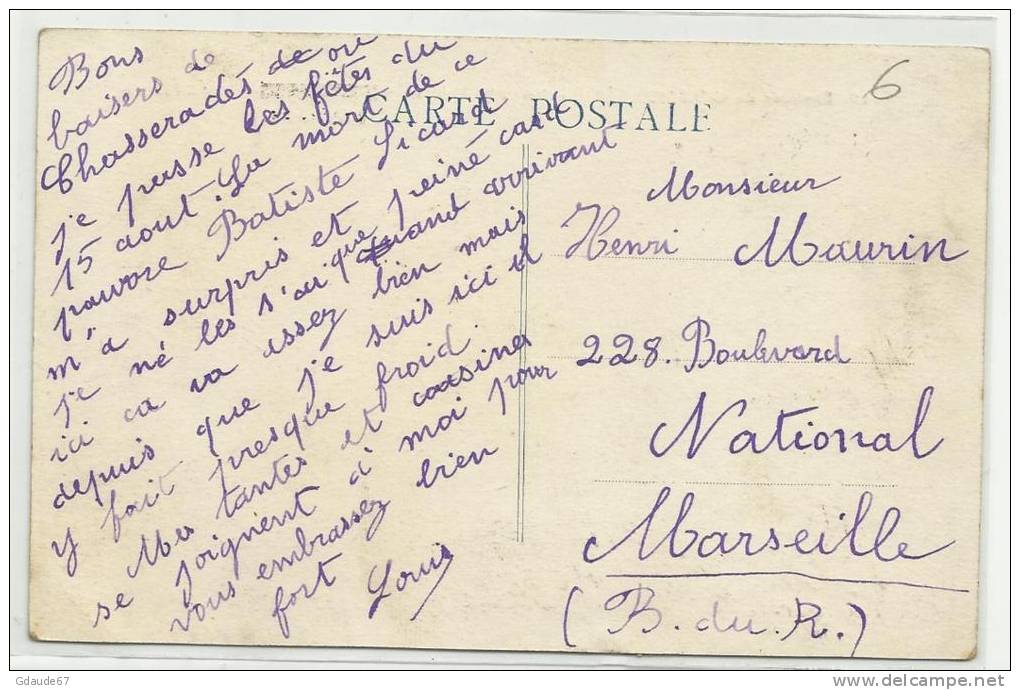 Bons
baisers de
Chasseradès de ou
je passe les fêtes du
15 aout. La mort de ce
pauvre Batiste Licard
m'a surpris et peiné card
je né les s'ai que quand arrivant
ici ca va assez bien mais
depuis que je suis ici il
y fait presque froid.
Mes tantes et cousines
se joignent à moi pour
vous embrassez bien
fort Louis
6
CARTE POSTALE
Monsieur
Henri Maurin
228. Boulevard
National
Marseille
(B. du. R.)
Gdaude67